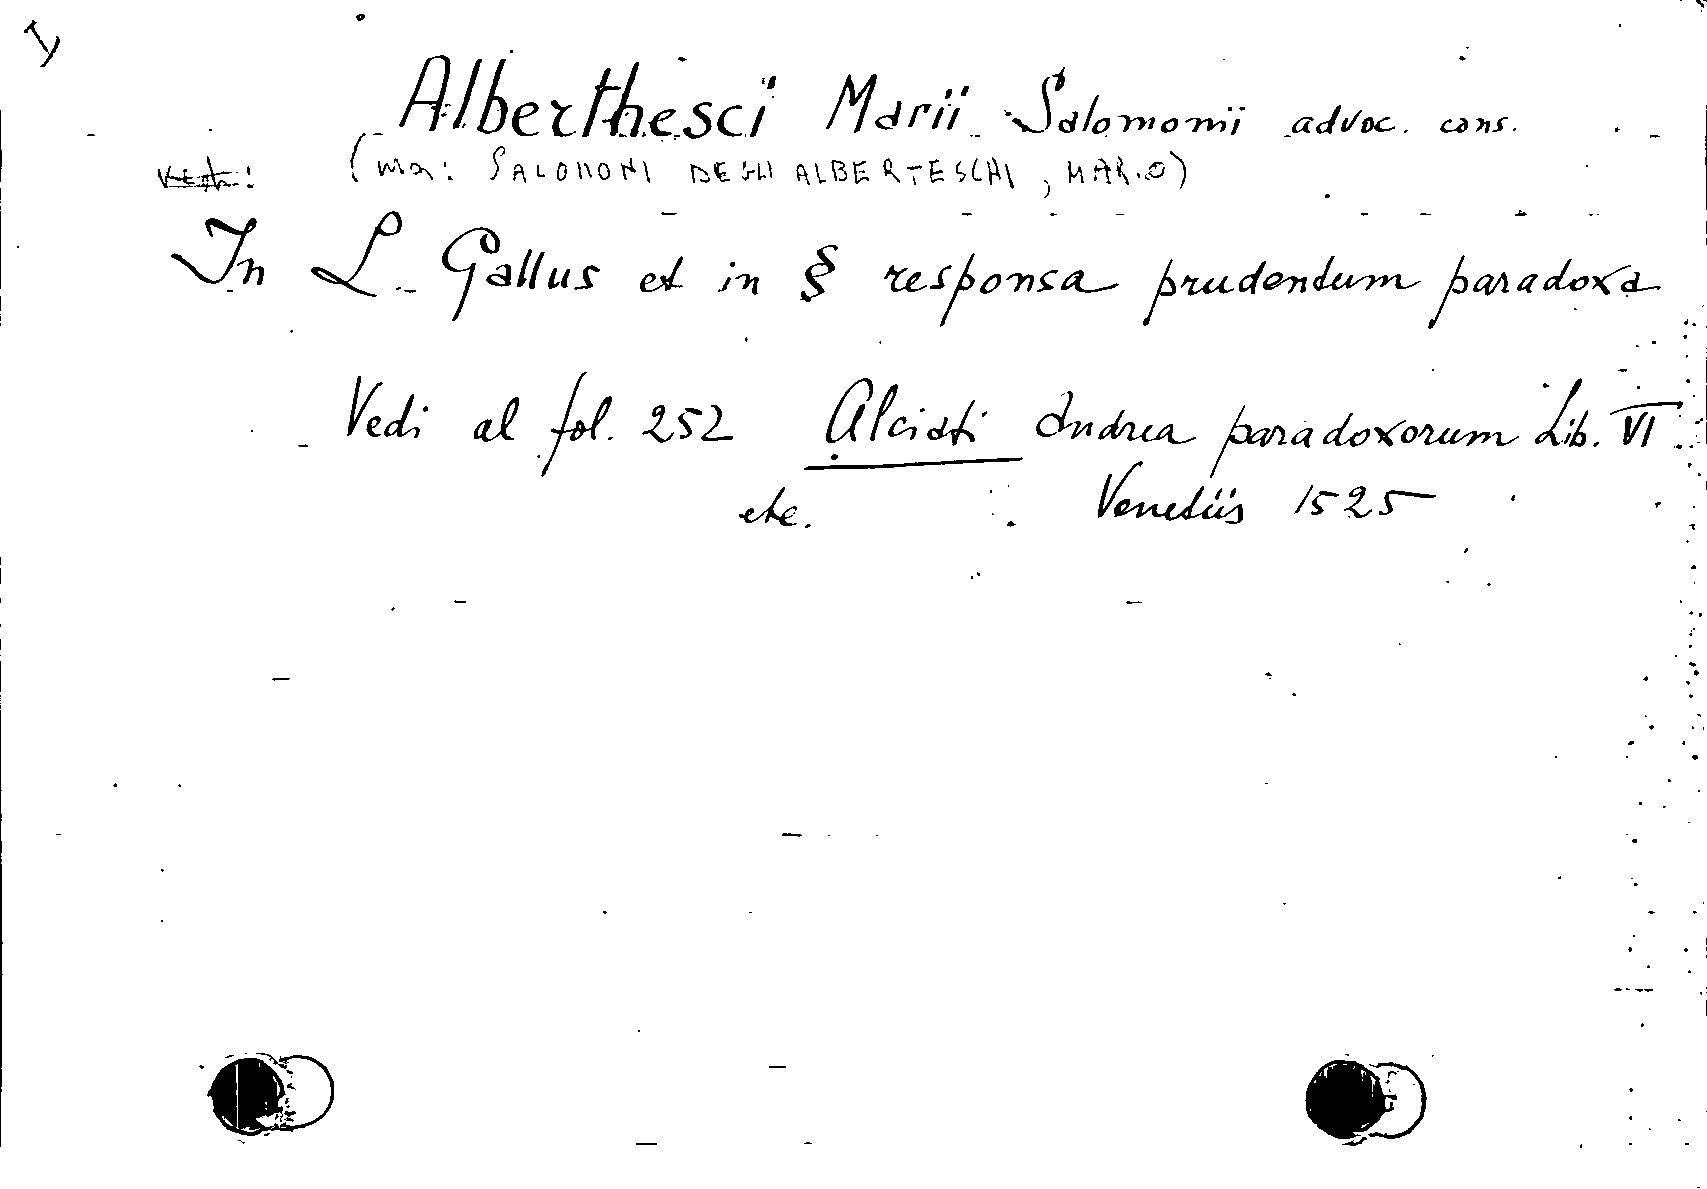 Alberthesci Marii Salomonii advoc. cons.
(ma: SALOMONI DEGLI ALBERTESCHI, MARIO)
In L. Gallus et in § responsa prudentum paradoxa
Vedi al fol. 252 Alciati Andrea paradoxorum Lib. VI
etc. Venetiis 1525